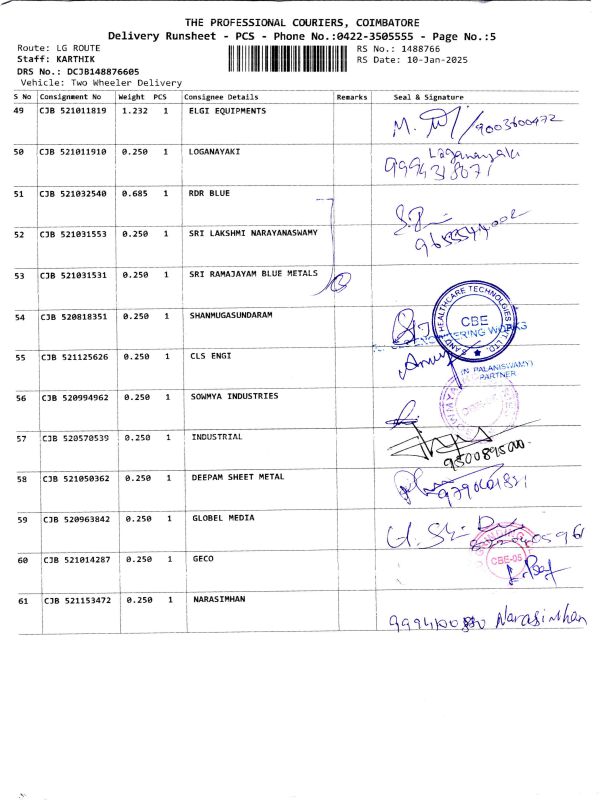 THE PROFESSIONAL COURIERS, COIMBATORE
Delivery Runsheet - PCS - Phone No.:0422-3505555 - Page No.:5
Route: LG ROUTE RS No.: 1488766
Staff: KARTHIK RS Date: 10-Jan-2025
DRS No.: DCJB148876605
Vehicle: Two Wheeler Delivery
S No Consignment No Weight PCS Consignee Details Remarks Seal & Signature
49 CJB 521011819 1.232 1 ELGI EQUIPMENTS
M. /9003600472
50 CJB 521011910 0.250 1 LOGANAYAKI
Loganayaki
51 CJB 521032540 0.685 1 RDR BLUE
52 CJB 521031553 0.250 1 SRI LAKSHMI NARAYANASWAMY
53 CJB 521031531 0.250 1 SRI RAMAJAYAM BLUE METALS
54 CJB 520818351 0.250 1 SHANMUGASUNDARAM
HEALTHCARE TECHNOLOGIES PVT. LTD.
CBE
ENGINEERING WORKS
55 CJB 521125626 0.250 1 CLS ENGI
(N. PALANISWAMY)
PARTNER
56 CJB 520994962 0.250 1 SOWMYA INDUSTRIES
57 CJB 520570539 0.250 1 INDUSTRIAL
9500895000
58 CJB 521050362 0.250 1 DEEPAM SHEET METAL
59 CJB 520963842 0.250 1 GLOBEL MEDIA
60 CJB 521014287 0.250 1 GECO
CBE-05
61 CJB 521153472 0.250 1 NARASIMHAN
Narasimhan